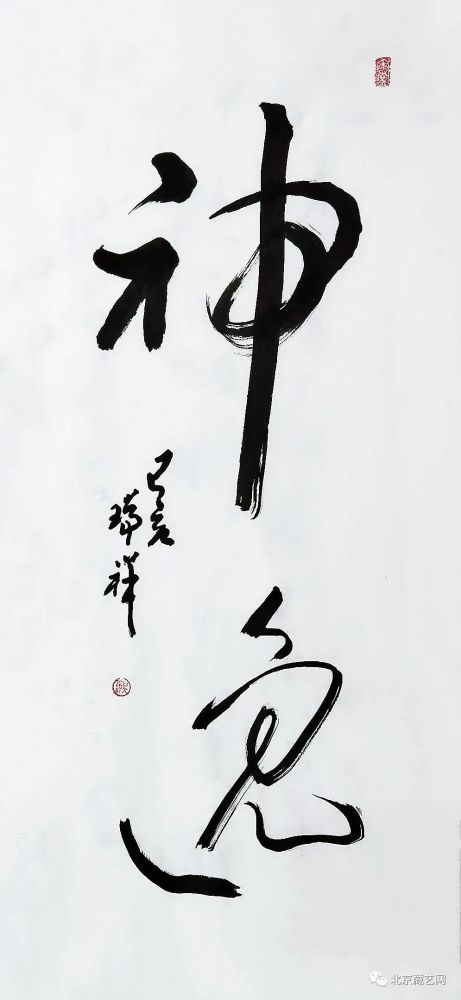 神逸
己亥
瑞祥
北京藏艺网